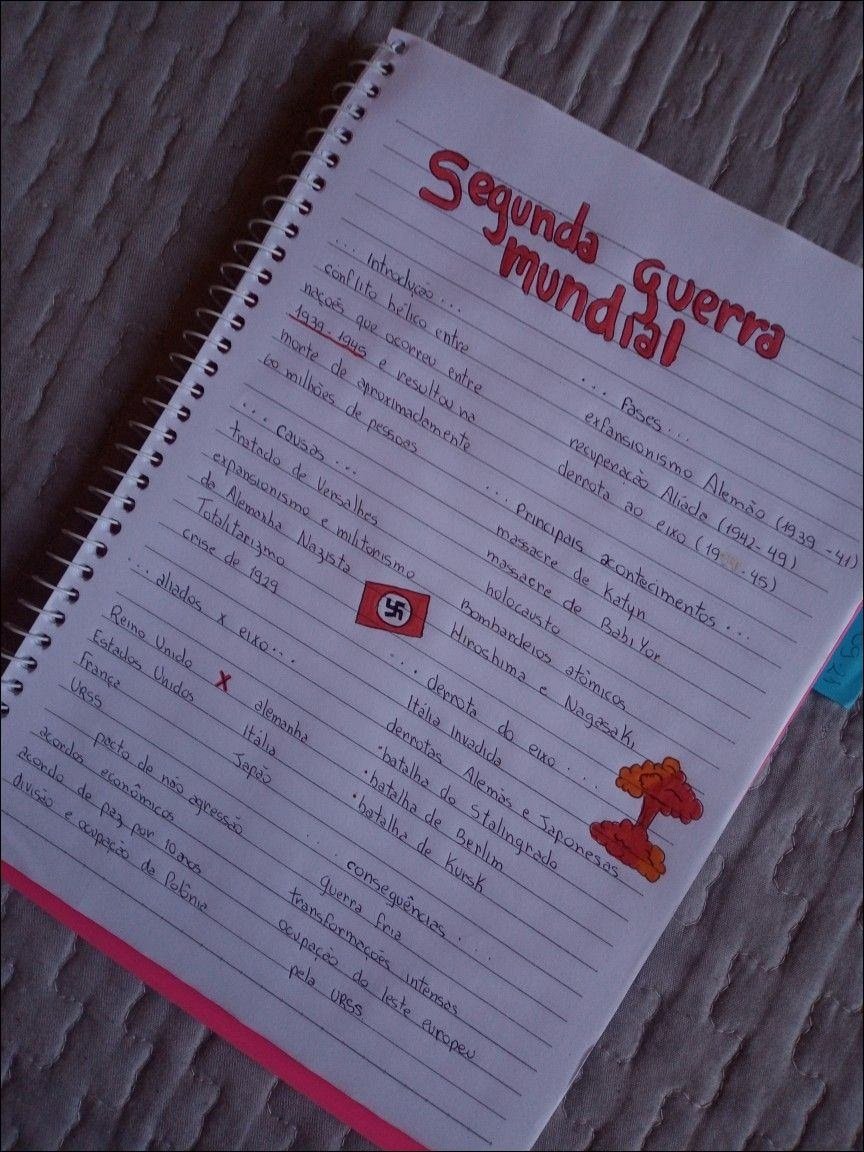 Segunda guerra
mundial
... Introdução ...
conflito bélico entre
nações que ocorreu entre
1939-1945 e resultou na
morte de aproximadamente
60 milhões de pessoas
... causas ...
tratado de Versalhes
expansionismo e militarismo
da Alemanha Nazista
Totalitarizmo
crise de 1929
... aliados x eixo...
Reino Unido
Estados Unidos
França
URSS
X
alemanha
Itália
Japão
pacto de não agressão
acordos econômicos
acordo de paz por 10 anos
divisão e ocupação da Polônia
... Fases ...
expansionismo Alemão (1939-41)
recuperação Aliada (1942-49)
derrota ao eixo (19 -45)
... Principais acontecimentos ...
massacre de Katyn
massacre de Babi Yar
holocausto
Bombardeios atômicos
Hiroshima e Nagasaki
... derrota do eixo ...
Itália invadida
derrotas Alemãs e Japonesas
•batalha do Stalingrado
•batalha de Berlim
•batalha de Kursk
... consequências ...
guerra fria
transformações intensas
ocupação do leste europeu
pela URSS